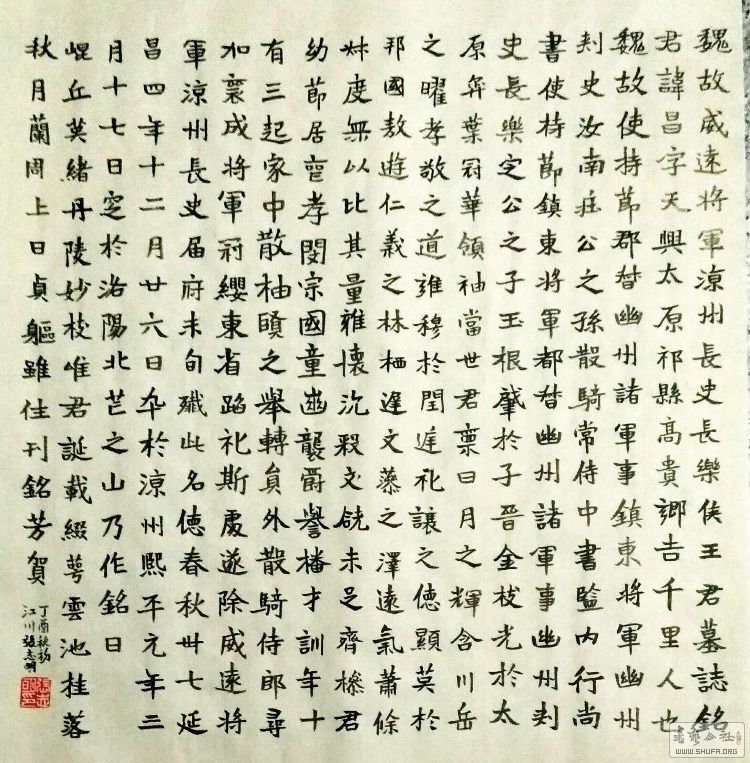 魏故威遠將軍涼州長史長樂侯王君墓誌銘
君諱昌字天興太原祁縣高貴鄉吉千里人也
魏故使持節郡督幽州諸軍事鎮東將軍幽州
刾史汝南莊公之孫散騎常侍中書監內行尚
書使持節鎮東將軍都督幽州諸軍事幽州刾
史長樂定公之子玉根肇於子晉金枝光於太
原弈葉冠華領袖當世君稟日月之輝含川岳
之曜孝敬之道雍穆於閨庭礼讓之德顯莫於
邦國敖遊仁義之林栖遲文藻之澤遠氣蕭條
林度無以比其量雅懷沉毅文皝未足齊檦君
幼節居喪孝閔宗國童幽襲爵譽播才訓年十
有三起家中散柚賾之舉轉員外散騎侍郎尋
加襄成將軍冠纓東省蹈礼斯處遂除威遠將
軍涼州長史届府未旬殲此名德春秋卅七延
昌四年十二月廿六日卒於涼州熙平元年三
月十七日窆於洛陽北芒之山乃作銘曰
崐丘英緒丹陵妙枝唯君誕載綴萼雲池桂落
秋月蘭凋上日貞軀雖住刊銘芳賀
丁酉秋初
江川張志明
WWW.SHUFA.ORG